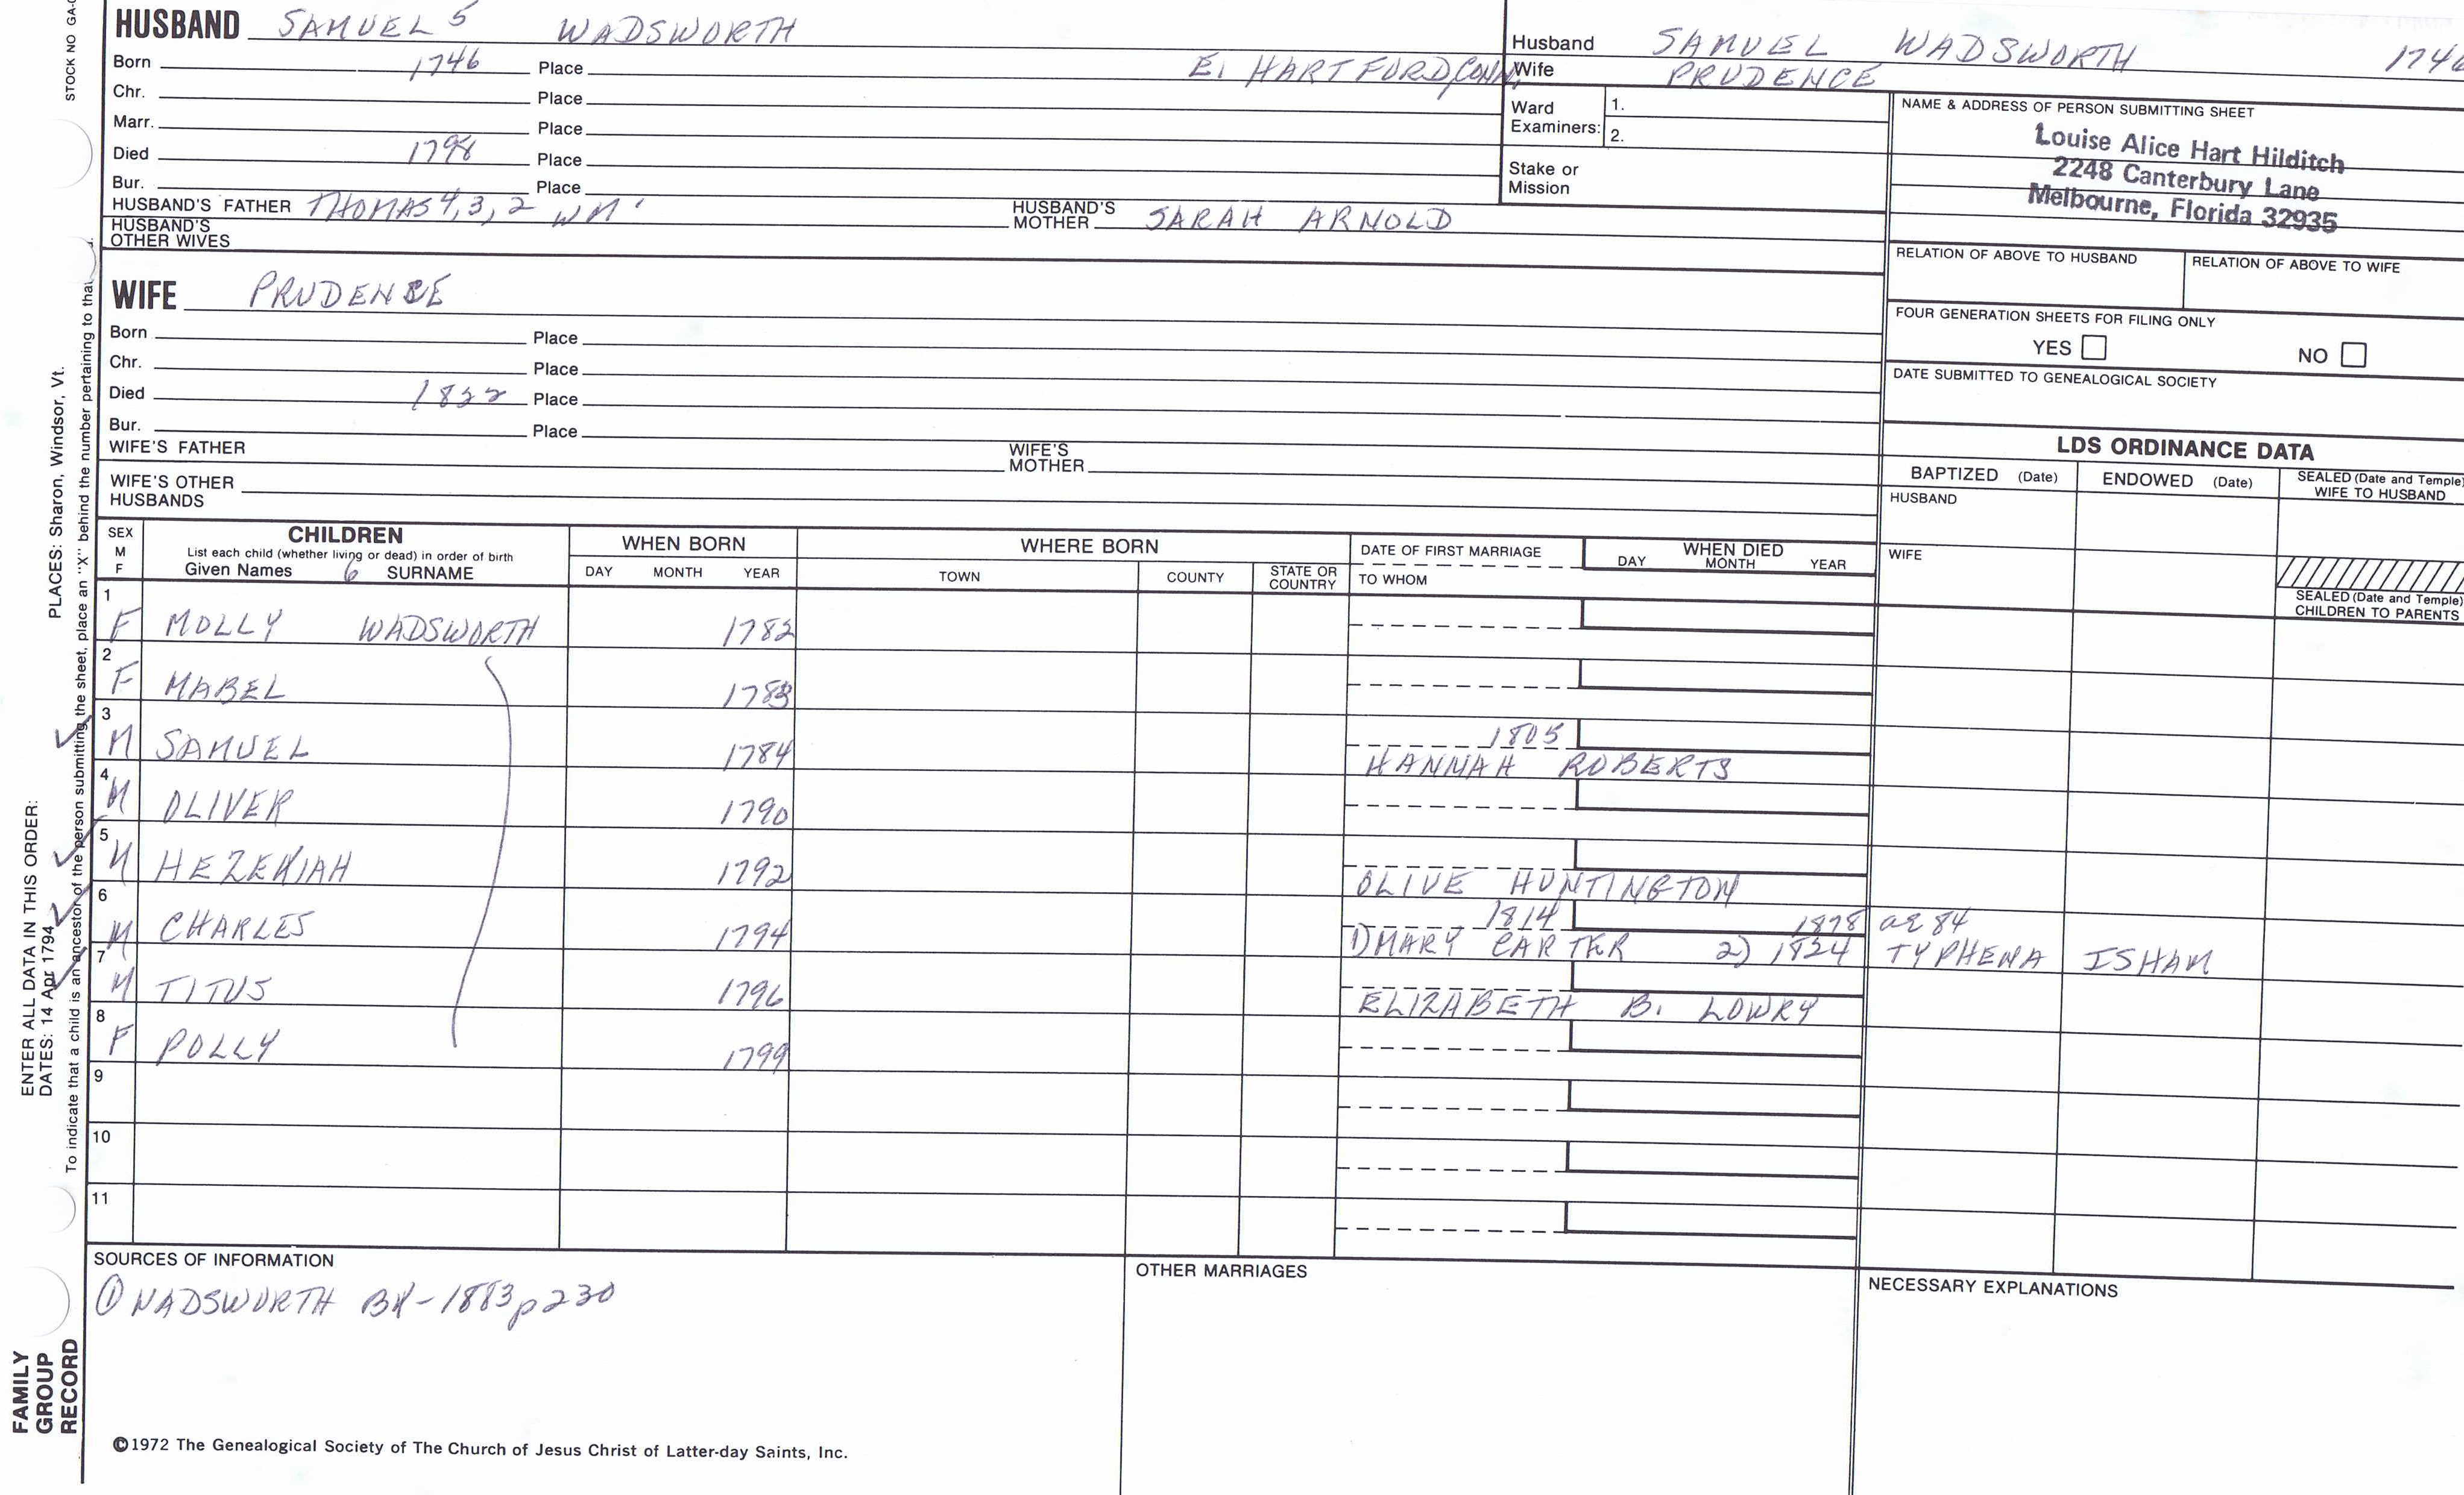 STOCK NO GA-
HUSBAND SAMUEL 5 WADSWORTH
Born 1746 Place E. HARTFORD, CONN,
Chr. Place
Marr. Place
Died 1798 Place
Bur. Place
HUSBAND'S FATHER THOMAS 4, 3, 2 WM' HUSBAND'S MOTHER SARAH ARNOLD
HUSBAND'S OTHER WIVES
Husband SAMUEL WADSWORTH 1746
Wife PRUDENCE
Ward Examiners: 1.
2.
Stake or Mission
NAME & ADDRESS OF PERSON SUBMITTING SHEET
Louise Alice Hart Hilditch
2248 Canterbury Lane
Melbourne, Florida 32935
RELATION OF ABOVE TO HUSBAND RELATION OF ABOVE TO WIFE
FOUR GENERATION SHEETS FOR FILING ONLY
YES NO
DATE SUBMITTED TO GENEALOGICAL SOCIETY
WIFE PRUDENCE
Born Place
Chr. Place
Died 1822 Place
Bur. Place
WIFE'S FATHER WIFE'S MOTHER
WIFE'S OTHER HUSBANDS
LDS ORDINANCE DATA
BAPTIZED (Date) ENDOWED (Date) SEALED (Date and Temple) WIFE TO HUSBAND
HUSBAND
WIFE
SEALED (Date and Temple) CHILDREN TO PARENTS
SEX M F
CHILDREN
List each child (whether living or dead) in order of birth
Given Names 6 SURNAME
WHEN BORN
DAY MONTH YEAR
WHERE BORN
TOWN COUNTY STATE OR COUNTRY
DATE OF FIRST MARRIAGE
TO WHOM
WHEN DIED
DAY MONTH YEAR
1 F MOLLY WADSWORTH 1782
2 F MABEL 1783
3 M SAMUEL 1784 1805
HANNAH ROBERTS
4 M OLIVER 1790
5 M HEZEKIAH 1792
OLIVE HUNTINGTON
6 M CHARLES 1794 1814 1878 ae 84
1) MARY CARTER 2) 1824 TYPHENA ISHAM
7 M TITUS 1796
ELIZABETH B. LOWRY
8 F POLLY 1799
9
10
11
SOURCES OF INFORMATION
① WADSWORTH BK-1883 p230
OTHER MARRIAGES
NECESSARY EXPLANATIONS
©1972 The Genealogical Society of The Church of Jesus Christ of Latter-day Saints, Inc.
FAMILY
GROUP
RECORD
ENTER ALL DATA IN THIS ORDER:
DATES: 14 Apr 1794
PLACES: Sharon, Windsor, Vt.
To indicate that a child is an ancestor of the person submitting the sheet, place an "X" behind the number pertaining to that